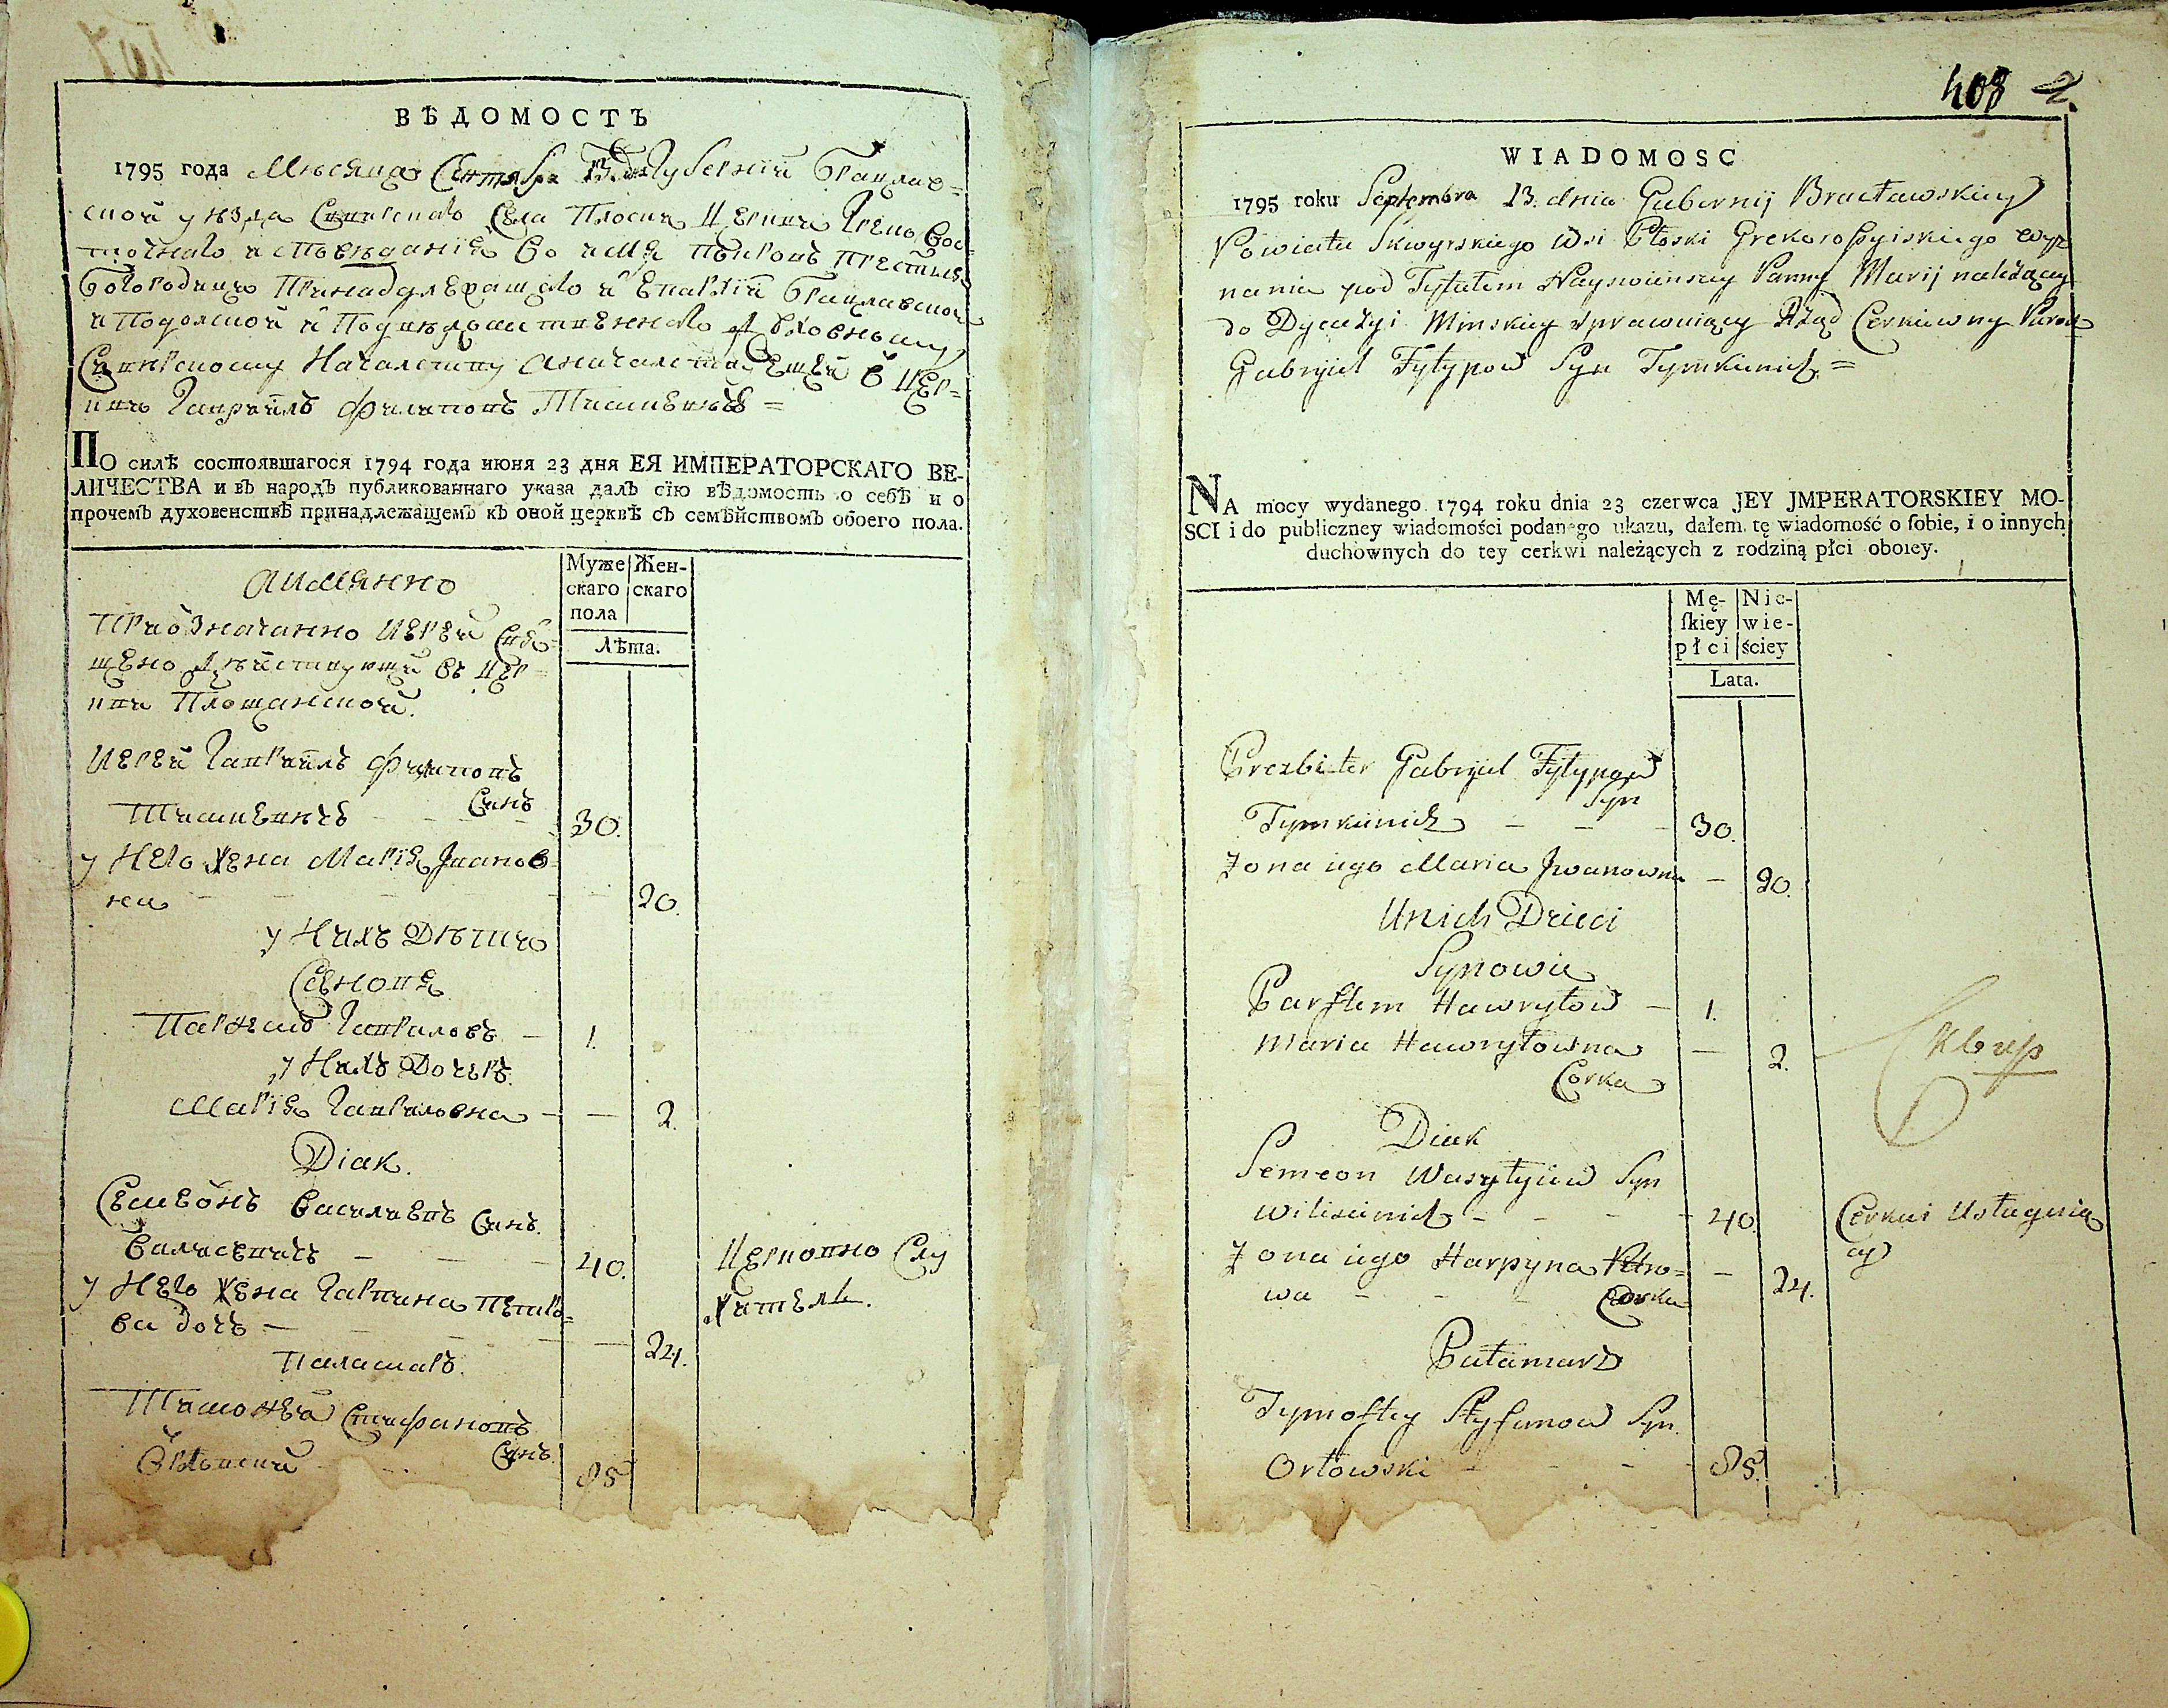 ВѢДОМОСТЪ
1795 года Мѣсяца Септября 13 дня Губерніи Брацлав=
ской уезда Сквирскаго Села Плоски Церкви Греко вос=
точнаго исповѣданія во имя Покровъ Престыя
Богородицы Принадлежащаго и Епархіи Брацлавской
и Подолской и Подвѣдомственнаго Духовному
Сквирскому Началству началствующей в цер=
кви Гавриилъ Филиповъ Тимкевичъ =
ПО силѣ состоявшагося 1794 года июня 23 дня ЕЯ ИМПЕРАТОРСКАГО ВЕ-
ЛИЧЕСТВА и въ народъ публикованнаго указа далъ сїю вѣдомость о себѣ и о
прочемъ духовенствѣ принадлежащемъ къ оной церквѣ съ семѣйствомъ обоего пола.
Муже Жен-
скаго скаго
пола
лѣта.
Аимянно
Прибзначанно Иерей Свя=
щено дѣйствующи въ цер=
кви Площанской.
Иерей Гавриилъ Филиповъ
Синъ
Тимкевичъ - - - 30.
у Него Жена Марія Іванов=
на - - - - 20.
у Нихъ Дѣтию
Синовя
Парѳемъ Гавриловъ - 1.
у Нихъ Дочеръ
Марія Гавриловна - - 2.
Diak.
Семеонъ Василиевъ Синъ.
Вилисевичъ - - - 40. Церковно Слу
у Него Жена Гарпина Петро= житель.
ва дочъ - - - - 24.
Паламаръ.
Тимоѳей Стефановъ
Синъ.
Орловский - - 85
408 2.
WIADOMOSC
1795 roku Septembra 13. dnia Gubernij Bracławskiey
Powiatu Skwyrskiego Wsi Płoski Grekorossyiskiego wyz
nania pod Tytułem Nayswienszey Panny Marij nalezącey
do Dycezyi Minskiey sprawuiący Rząd Cerkiewny Paroch
Gabryiel Fyłypow Syn Tymkiewicz =
NA mocy wydanego 1794 roku dnia 23 czerwca JEY JMPERATORSKIEY MO-
SCI i do publiczney wiadomości podanego ukazu, dałem tę wiadomość o ſobie, i o innych
duchownych do tey cerkwi należących z rodziną płci oboiey.
Mę- Nie-
ſkiey wie-
płci ściey
Lata.
Prezbiter Gabryiel Fyłypow
Syn
Tymkiewicz - - - 30.
Żona iego Maria Jwanowna - 20.
Unich Dzieci
Synowie
Parftem Hawryłow - 1.
Maria Hawryłowna - 2.
Corka
Сквир
Diak
Semeon Wasyłyiow Syn
Wilisiewicz - - - 40. Cerkwi Usługuią
cy
Żona iego Harpyna Petro= - 24.
wa - - - Corka
Pałamarz
Tymoftey Styfanow Syn
Orłowski - - - 85.